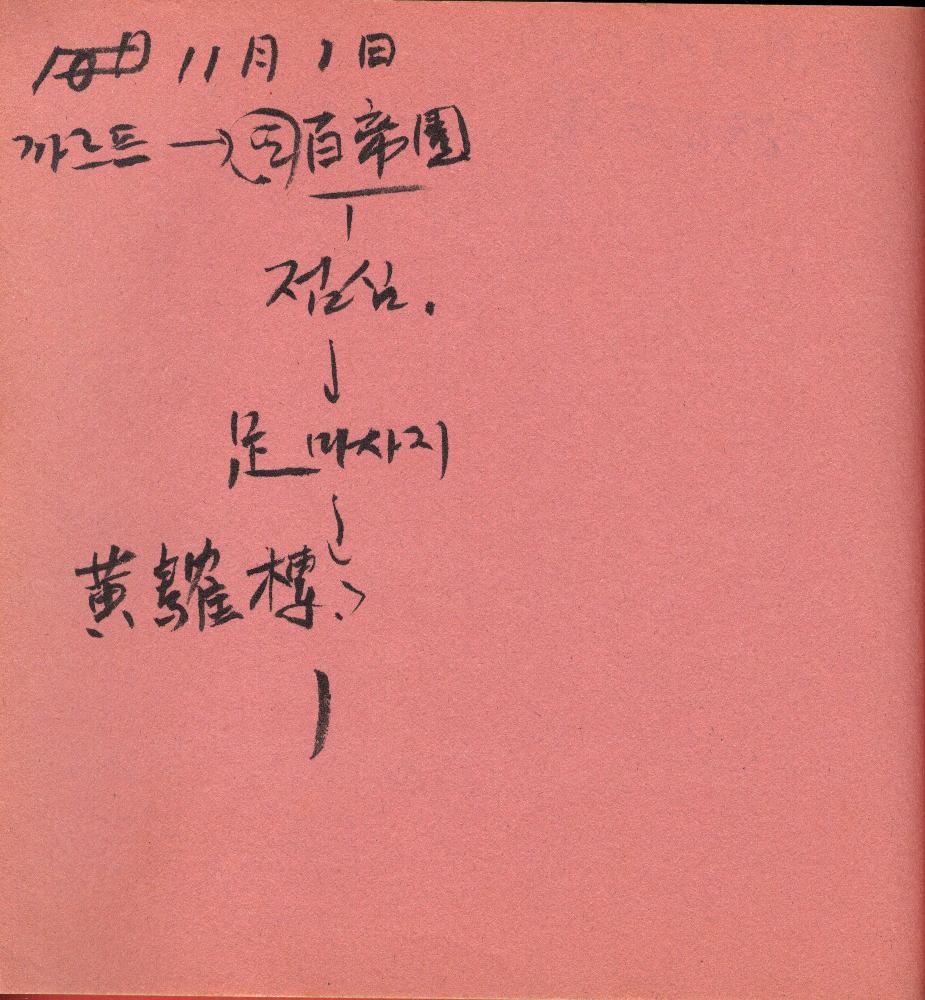 11月 1日
까르프 → 또 百帝園
점심.
足 마사지
黃鶴樓